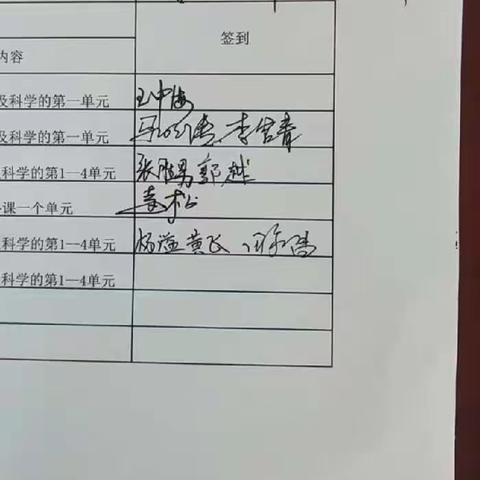 签到
内容
及科学的第一单元 王中海
及科学的第一单元 李营青
科学的第1—4单元 张胜男 郭越
课一个单元 袁松
科学的第1—4单元 杨滢 黄飞
科学的第1—4单元